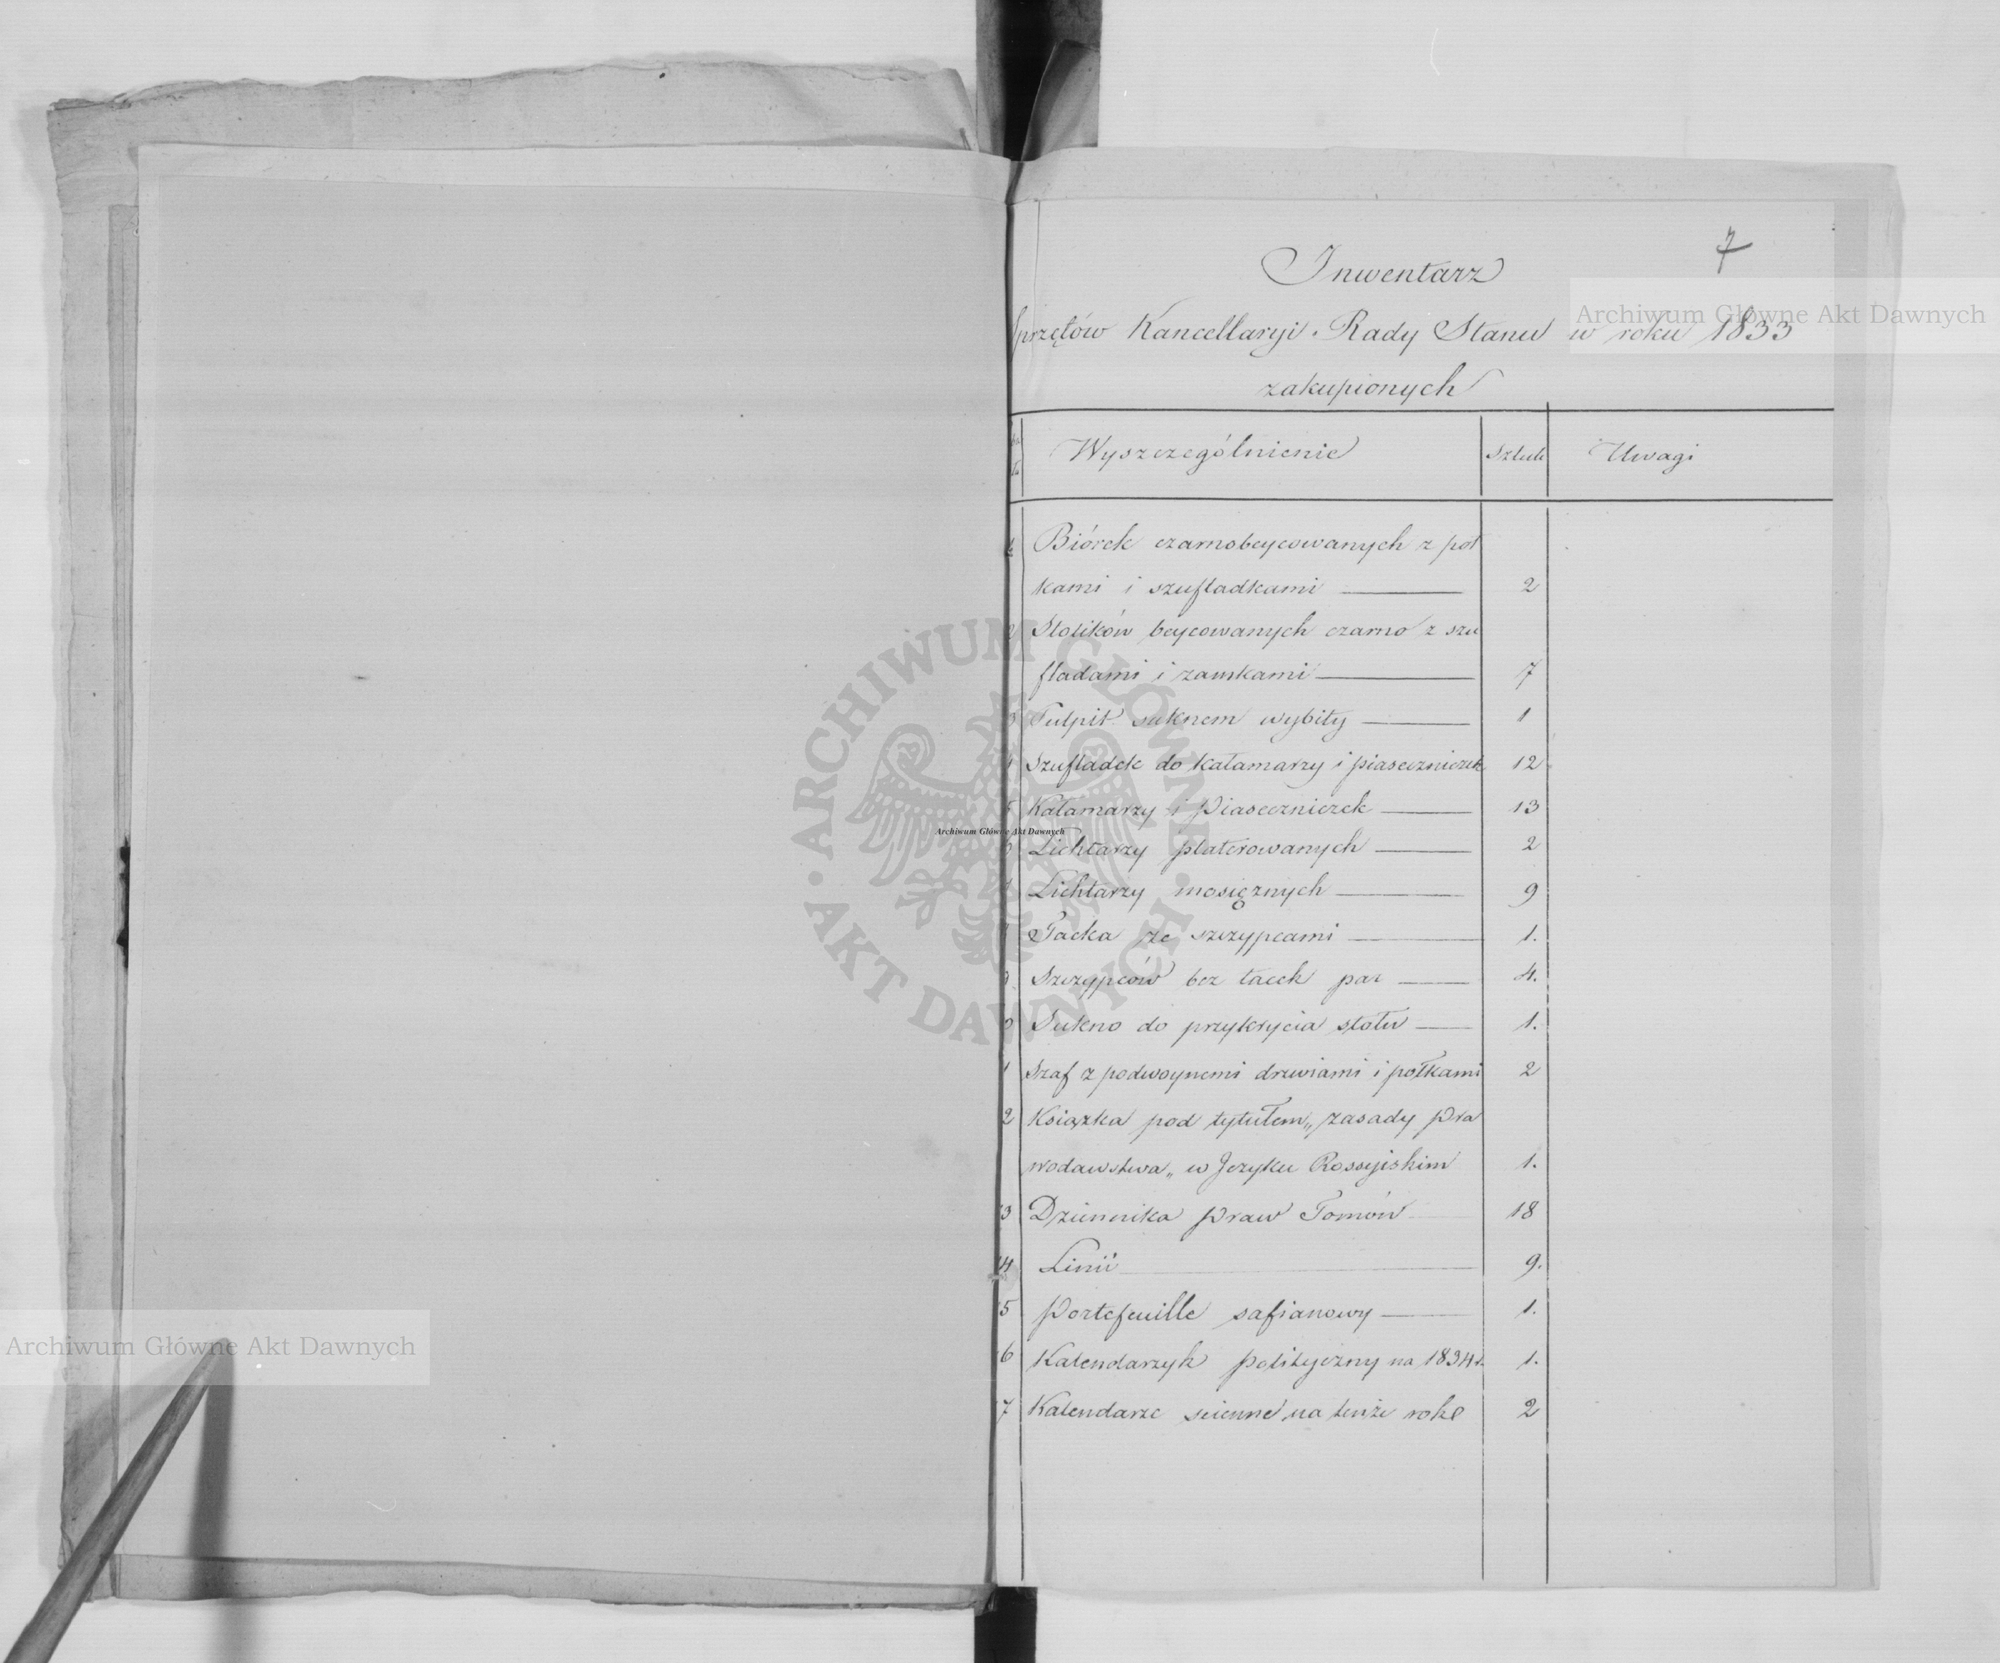 7
Inwentarz
sprzętów Kancellaryi Rady Stanu w roku 1833
zakupionych
Wyszczególnienie Sztuk Uwagi
1 Biórek czarnobeycowanych z pół
kami i szufladkami 2
2 Stolików beycowanych czarno z szu
fladami i zamkami 7
3 Pulpit suknem wybity 1
4 Szufladek do kałamarzy i piaseczniczek 12
5 Kałamarzy i Piaseczniczek 13
6 Lichtarzy platerowanych 2
7 Lichtarzy mosiężnych 9
8 Tacka ze szczypcami 1.
9 Szczypców bez tacek par 4.
10 Sukno do przykrycia stołu 1.
11 Szaf z podwoynemi drzwiami i połkami 2
12 Ksiązka pod tytułem „zasady Pra
wodawstwa„ w Języku Rossyiskim 1.
13 Dziennika Praw Tomów 18
14 Linii 9.
15 Portefeuille safianowy 1.
16 Kalendarzyk polityczny na 1834 r. 1.
17 Kalendarze scienne na tenże rok 2
Archiwum Główne Akt Dawnych
Archiwum Główne Akt Dawnych
Archiwum Główne Akt Dawnych
ARCHIWUM GŁÓWNE AKT DAWNYCH